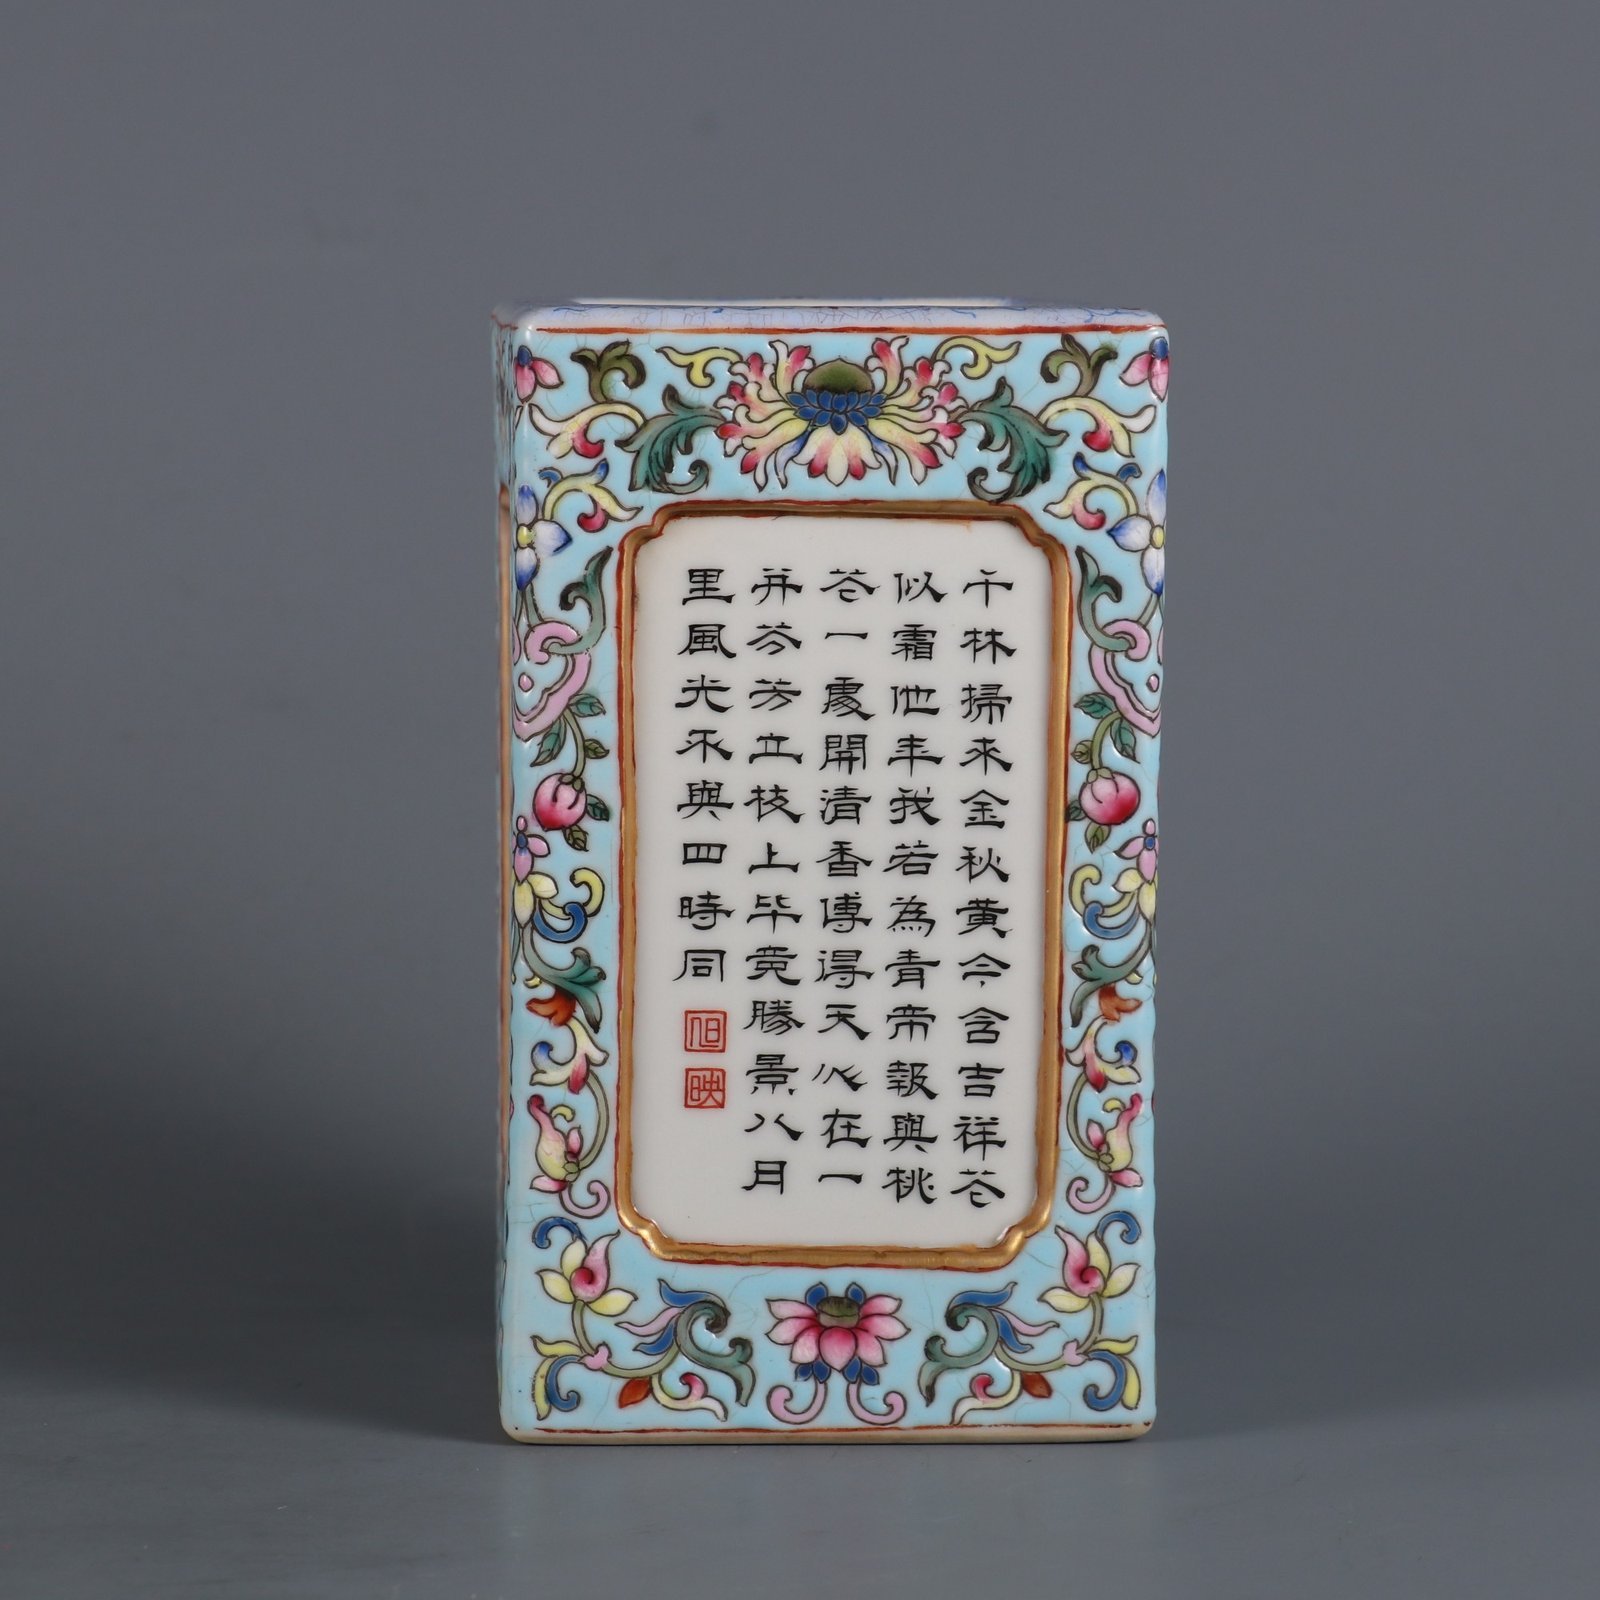 千林掃來金秋黄今含吉祥花
似霜他年我若為青帝報與桃
花一處開清香傳得天心在一
并芬芳立枝上毕竟勝景八月
里風光不與四時同
旭
映